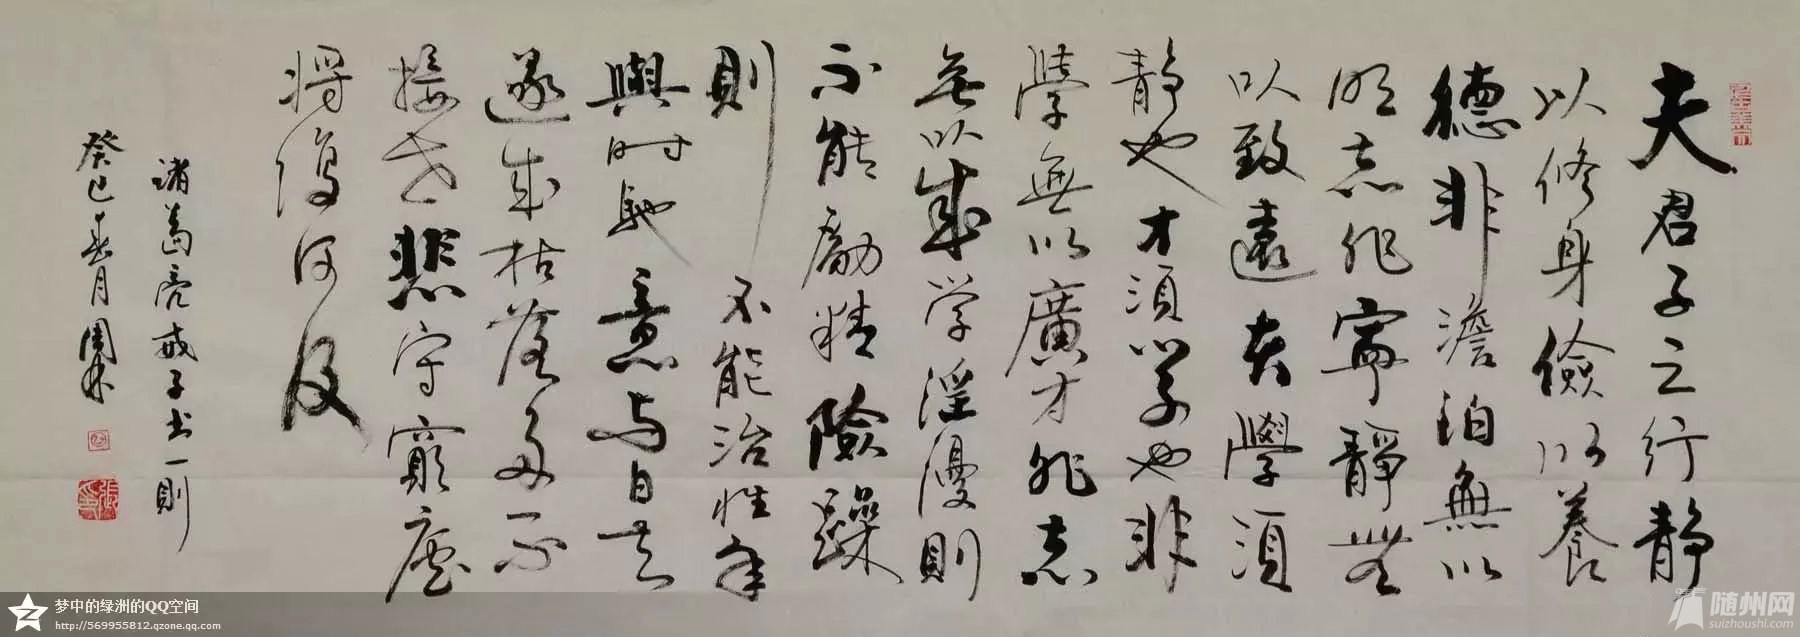 夫君子之行静
以修身儉以養
德非澹泊無以
明志非寧静無
以致遠夫學須
静也才須学也非
學無以廣才非志
無以成学淫漫則
不能勵精險躁
則不能冶性年
與时馳意与日去
遂成枯落多不
接世悲守窮廬
将復何及
诸葛亮戒子书一則
癸巳春月
梦中的绿洲的QQ空间
http://569955812.qzone.qq.com
随州网
suizhoushi.com